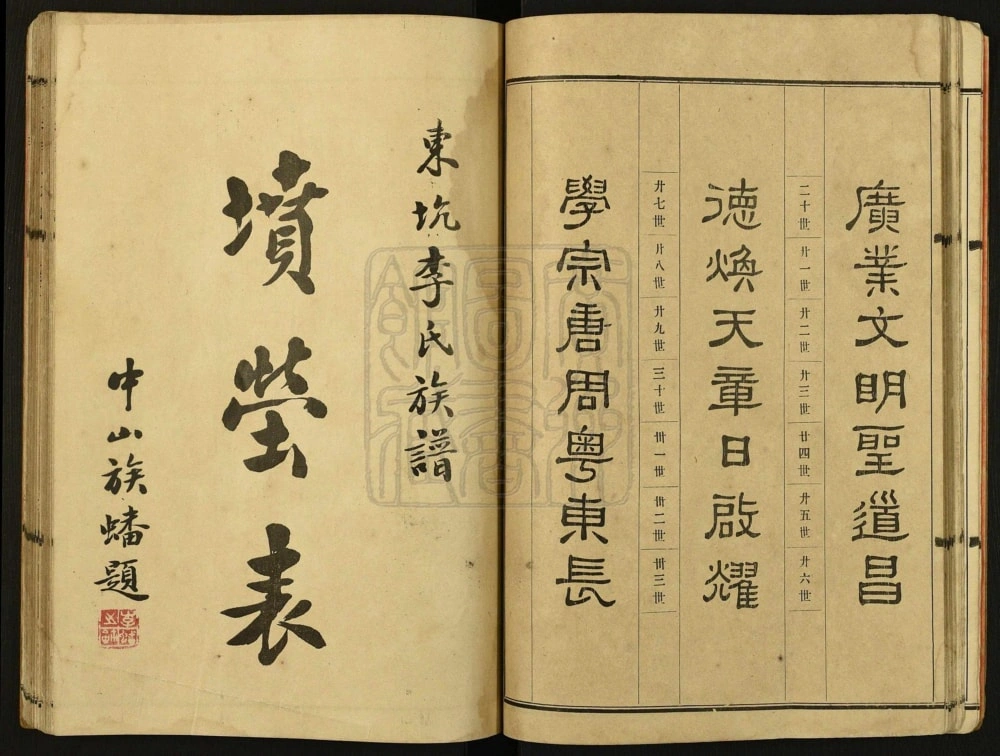 廣業文明聖道昌
二十世 廿一世 廿二世 廿三世 廿四世 廿五世 廿六世
德煥天章日啟耀
廿七世 廿八世 廿九世 三十世 卅一世 卅二世 卅三世
學宗唐周粵東長
東坑李氏族譜
墳塋表
中山族蟠題